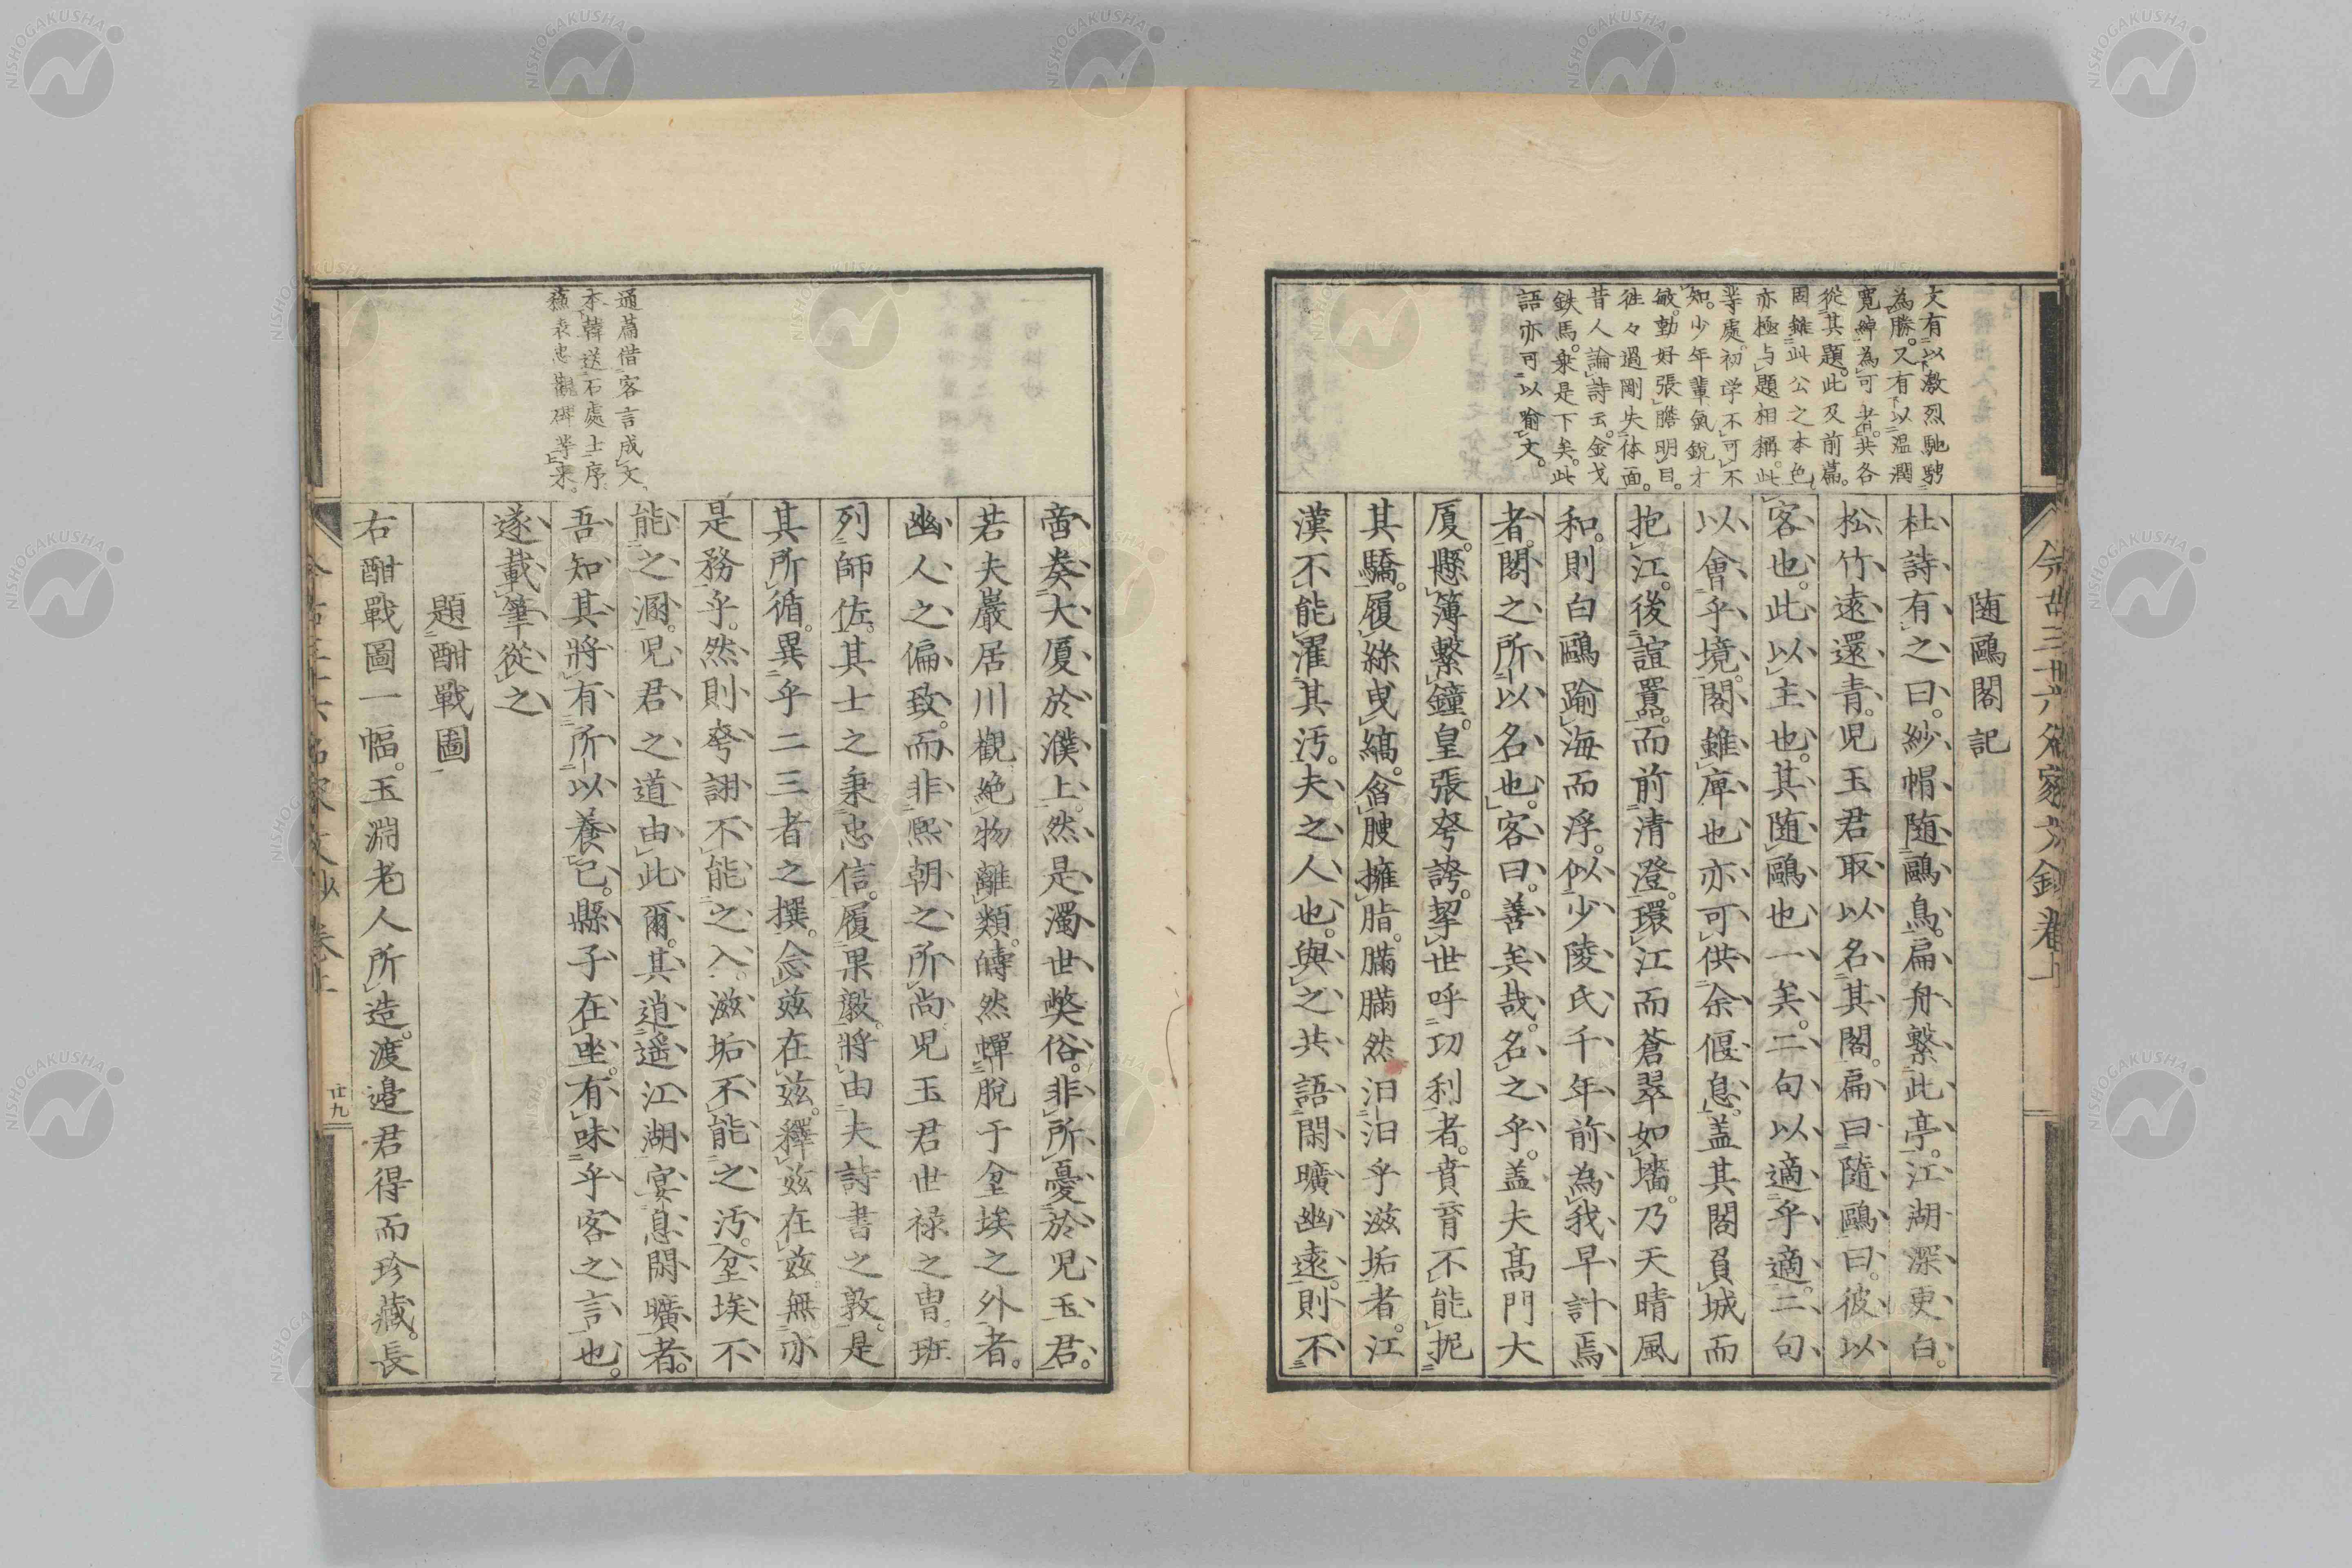 今古三十六名家文鈔卷十
隨鷗閣記
杜詩有之曰。紗帽随鷗鳥。扁舟繫此亭。江湖深更白。
松竹遠還青。児玉君取以名其閣。扁曰隨鷗。曰。彼以
客也。此以主也。其随鷗也一矣。二句以適乎適。二句
以會乎境。閣雖庳也亦可供余偃息。盖其閣負城而
抱江。後諠囂。而前清澄。環江而蒼翠如墻。乃天晴風
和。則白鷗踰海而浮。似少陵氏千年前為我早計焉
者。閣之所以名也。客曰。善矣哉。名之乎。盖夫高門大
厦。懸簿繫鐘。皇張夸誇。挈世呼功利者。賁育不能扼
其驕。履絲曳縞。含腴擁脂。膓膓然汩汩乎滋垢者。江
漢不能濯其汚。夫之人也。與之共語閑曠幽遠。則不
文有以激烈馳騁
為勝。又有以温潤
寛綽為可者。共各
從其題。此及前篇。
固雖此公之本色
亦極与題相稱。此
等處。初学不可不
知。少年輩氣鋭才
敏。動好張膽明目。
往々過剛失体面。
昔人論詩云。金戈
鉄馬。乗是下矣。此
語亦可以喻文。
啻奏大厦於濮上。然是濁世獘俗。非所憂於児玉君。
若夫巖居川觀絶物離類。皭然蟬脱于坌埃之外者。
幽人之偏致。而非熙朝之所尚児玉君世禄之冑班
列師佐。其士之秉忠信。履果毅。將由夫詩書之敦。是
其所循。異乎二三者之撰。念玆在玆。釋玆在玆。無亦
是務乎。然則夸詡不能之入。滋垢不能之汚。坌埃不
能之溷。児君之道由此爾。其逍遥江湖宴息閑曠者。
吾知其將有所以養已。縣子在坐。有味乎客之言也。
遂載筆從之
通篇借客言成文
本韓送石處士序
蘓表忠觀碑等來。
題酣戰圖
右酣戰圖一幅。玉淵老人所造。渡邉君得而珍藏。長
今古三十六名家文鈔卷十
廿九